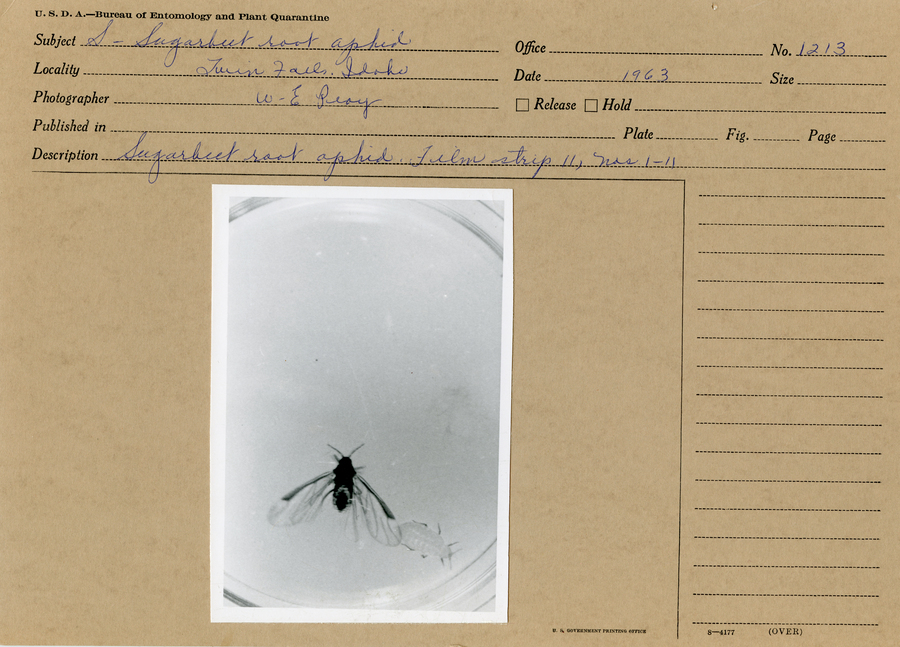 U. S. D. A.—Bureau of Entomology and Plant Quarantine
Subject S - Sugarbeet root aphid Office No. 1213
Locality Twin Falls, Idaho Date 1963 Size
Photographer W-E Peay Release Hold
Published in Plate Fig. Page
Description Sugarbeet root aphid. Film strip 11, nos 1-11
U. S. GOVERNMENT PRINTING OFFICE 8—4177 (OVER)